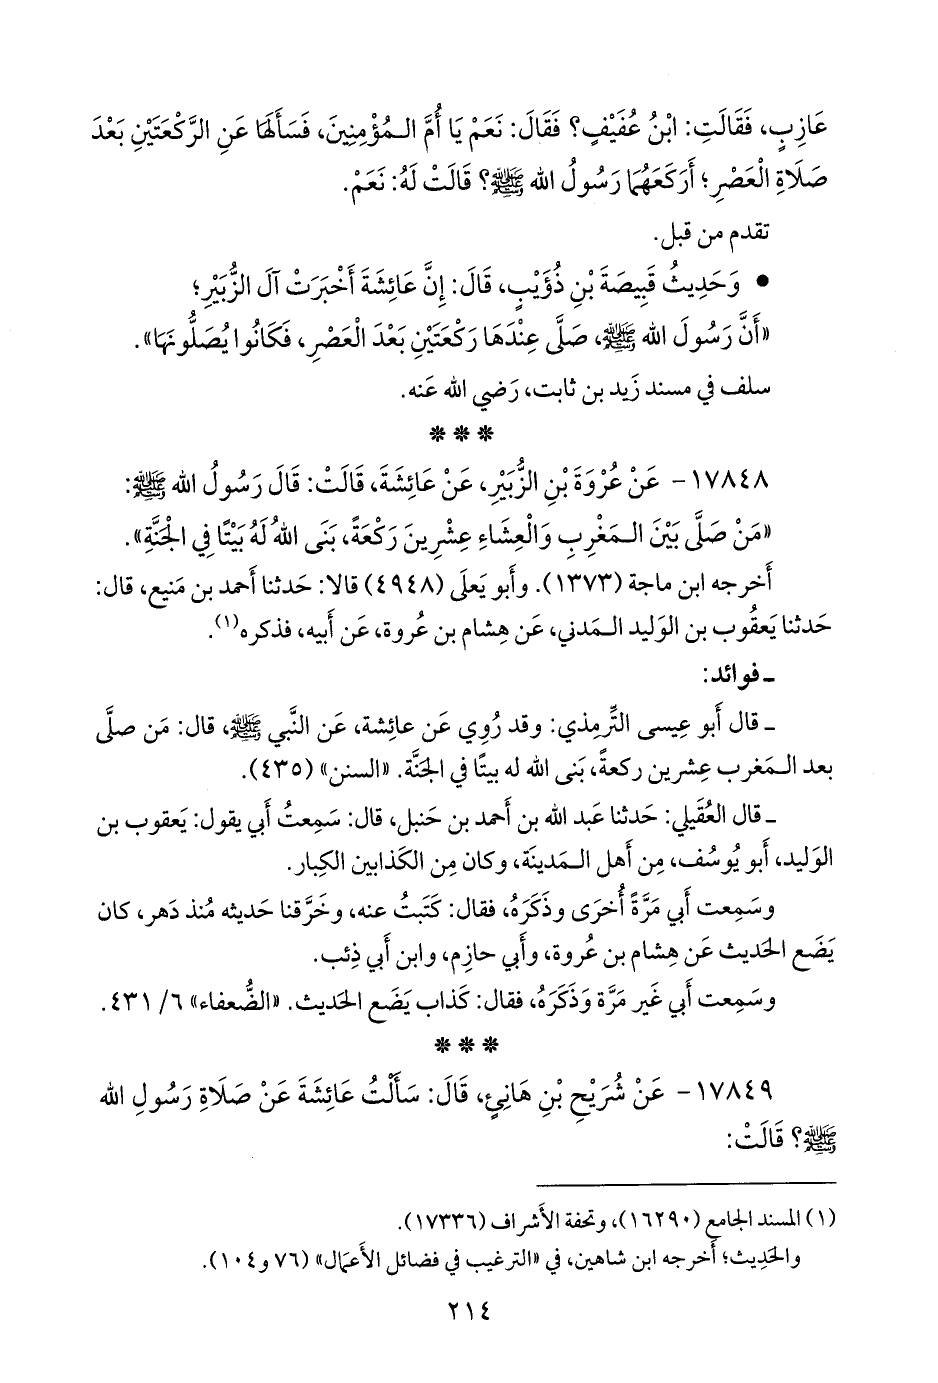 عَازِبٍ، فَقَالَتِ: ابْنُ عُفَيْفٍ؟ فَقَالَ: نَعَمْ يَا أُمَّ الـمُؤْمِنِينَ، فَسَأَلَهَا عَنِ الرَّكْعَتَيْنِ بَعْدَ
صَلَاةِ الْعَصْرِ؛ أَرَكَعَهُمَا رَسُولُ الله ﷺ؟ قَالَتْ لَهُ: نَعَمْ.
تقدم من قبل.
• وَحَدِيثُ قَبِيصَةَ بْنِ ذُؤَيْبٍ، قَالَ: إِنَّ عَائِشَةَ أَخْبَرَتْ آلَ الزُّبَيْرِ؛
«أَنَّ رَسُولَ الله ﷺ، صَلَّى عِنْدَهَا رَكْعَتَيْنِ بَعْدَ الْعَصْرِ، فَكَانُوا يُصَلُّونَهَا».
سلف في مسند زَيد بن ثابت، رَضي الله عَنه.
❋ ❋ ❋
١٧٨٤٨- عَنْ عُرْوَةَ بْنِ الزُّبَيْرِ، عَنْ عَائِشَةَ، قَالَتْ: قَالَ رَسُولُ الله ﷺ:
«مَنْ صَلَّى بَيْنَ الـمَغْرِبِ وَالْعِشَاءِ عِشْرِينَ رَكْعَةً، بَنَى اللهُ لَهُ بَيْتًا فِي الْجَنَّةِ».
أَخرجه ابن ماجة (١٣٧٣). وأَبو يَعلَى (٤٩٤٨) قالا: حَدثنا أَحمد بن مَنيع، قال:
حَدثنا يَعقُوب بن الوَليد الـمَدني، عَن هِشام بن عُروة، عَن أَبيه، فذكره(١).
ـ فوائد:
ـ قال أَبو عِيسى التِّرمِذي: وقد رُوِي عَن عائشة، عَن النَّبي ﷺ، قال: مَن صلَّى
بعد الـمَغرب عِشرين ركعةً، بَنى الله له بيتًا في الجَنَّة. «السنن» (٤٣٥).
ـ قال العُقَيلي: حَدثنا عَبد الله بن أَحمد بن حَنبل، قال: سَمِعتُ أَبي يقول: يَعقوب بن
الوَليد، أَبو يُوسُف، مِن أَهل الـمَدينَة، وكان مِن الكَذابين الكِبار.
وسَمِعت أَبي مَرَّةً أُخرَى وذَكَرَهُ، فقال: كَتَبتُ عنه، وخَرَّقنا حَديثه مُنذ دَهر، كان
يَضَع الحَديث عَن هِشام بن عُروة، وأَبي حازِم، وابن أَبي ذِئب.
وسَمِعت أَبي غَير مَرَّة وَذَكَرَهُ، فقال: كَذاب يَضَع الحَديث. «الضُّعفاء» ٦/ ٤٣١.
❋ ❋ ❋
١٧٨٤٩- عَنْ شُرَيْحِ بْنِ هَانِئٍ، قَالَ: سَأَلْتُ عَائِشَةَ عَنْ صَلَاةِ رَسُولِ الله
ﷺ؟ قَالَتْ:
(١) المسند الجامع (١٦٢٩٠)، وتحفة الأشراف (١٧٣٣٦).
والحَدِيث؛ أَخرجه ابن شاهين، في «الترغيب في فضائل الأعمال» (٧٦ و١٠٤).
٢١٤